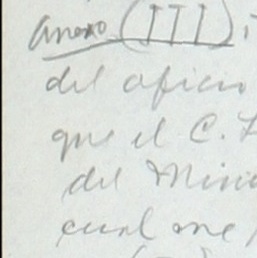 anexo (III);
del oficio
que el C.
del Minis
cual me